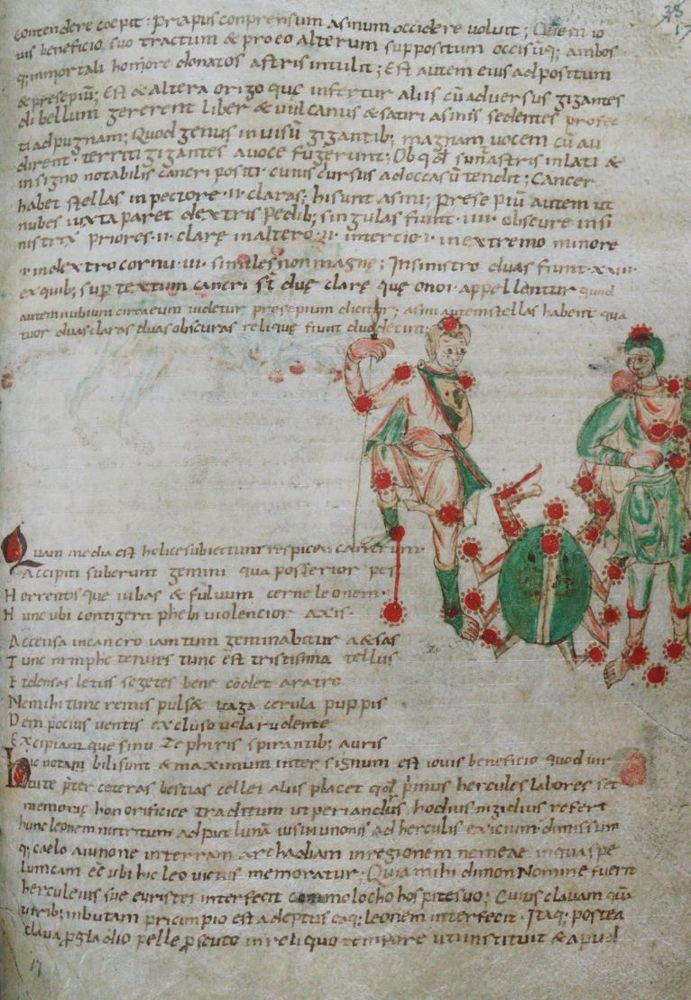 38
17
contendere coepit: priapus conprensum asinum occidere voluit; Quem io
vis beneficio suo tractum & pro eo alterum suppositum occisuq; ambos
q; inmortali honore donatos astris intulit; Est autem eius adpositum
& presepiū; Est & altera origo que infertur aliis cū adversus gigantes
di bellum gererent liber & vulcanus & satiri asinis sedentes profec
ti ad pugnam; Quod genus in visū gigantib; magnam vocem cū au
dirent territi gigantes a voce fugerunt; Ob qđ sun̄ astris inlati &
in signo notabilis cancri positi cuius cursus ad occasū tendit; Cancer
habet stellas in pectore ·II· claras; hi sunt asini; presepiū autem ut
nubes iuxta paret dextris pedib; singulas fiunt ·IIII· obscure in si
nistris priores ·II· clare in altero ·II· in tercio ·I· in extremo minore
·I· in dextro cornu ·III· similes non magne; In sinistro duas fiunt ·XVII·
ex quib; sup textum cancri st̄ due clare que onoi appellentur quid
autem nubium circa eum videtur presepium dicitur; asini autem stellas habent qua
tuor duas claras duas obscuras relique fiunt duodecim·
Quam media est helice subiectum respice cancrum
Accipiti suberunt gemini qua posterior pes
Horrentisque iubas & fulvum cerne leonem·
Hunc ubi contigerit phebi violencior axis·
Accensa in cancro iam tum geminabitur aestas
Tunc nimphe tenues tunc est tristissima tellus
Et densas letus segetes bene condet aratro
Ne mihi tunc remus pulset vaga cerula puppis
Dem pocius ventis excluso vela rudente
Excipiamque sinu Zephiris spirantib; auris
Hic notam bilisunt & maximum inter signum est iovis beneficio quod vir
tute pter coteras bestias celle i aliis placet qđ primus hercules labores sit
memoris honorifice traditum ut periandus hodius nigidius refert
hunc leonem nutritum aput lunā iussu iunonis ad herculis exicium dimissum
q; caelo a iunone in terram archadiam in regionem nemeae inqua spe
luncam et ubi hic leo victus memoratur; Quia mihi dimon Nomine fuerit
herculeius sive euristei interfecit cum molocho hospite suo; Cuius clavam quā
virib; inbutam principio est adeptus eaq; leonem interfecit· Itaq; postea
clava p gladio pelle p scuto in reliquo tempore uti instituit & apud
17